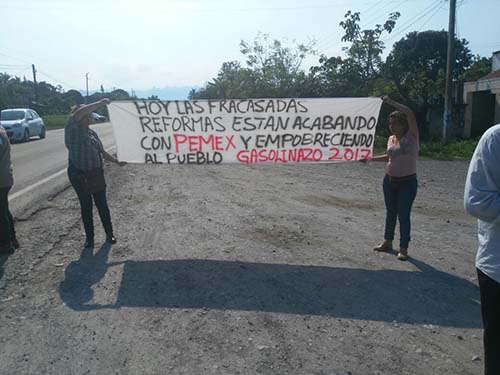 HOY LAS FRACASADAS
REFORMAS ESTAN ACABANDO
CON PEMEX Y EMPOBRECIENDO
AL PUEBLO GASOLINAZO 2017